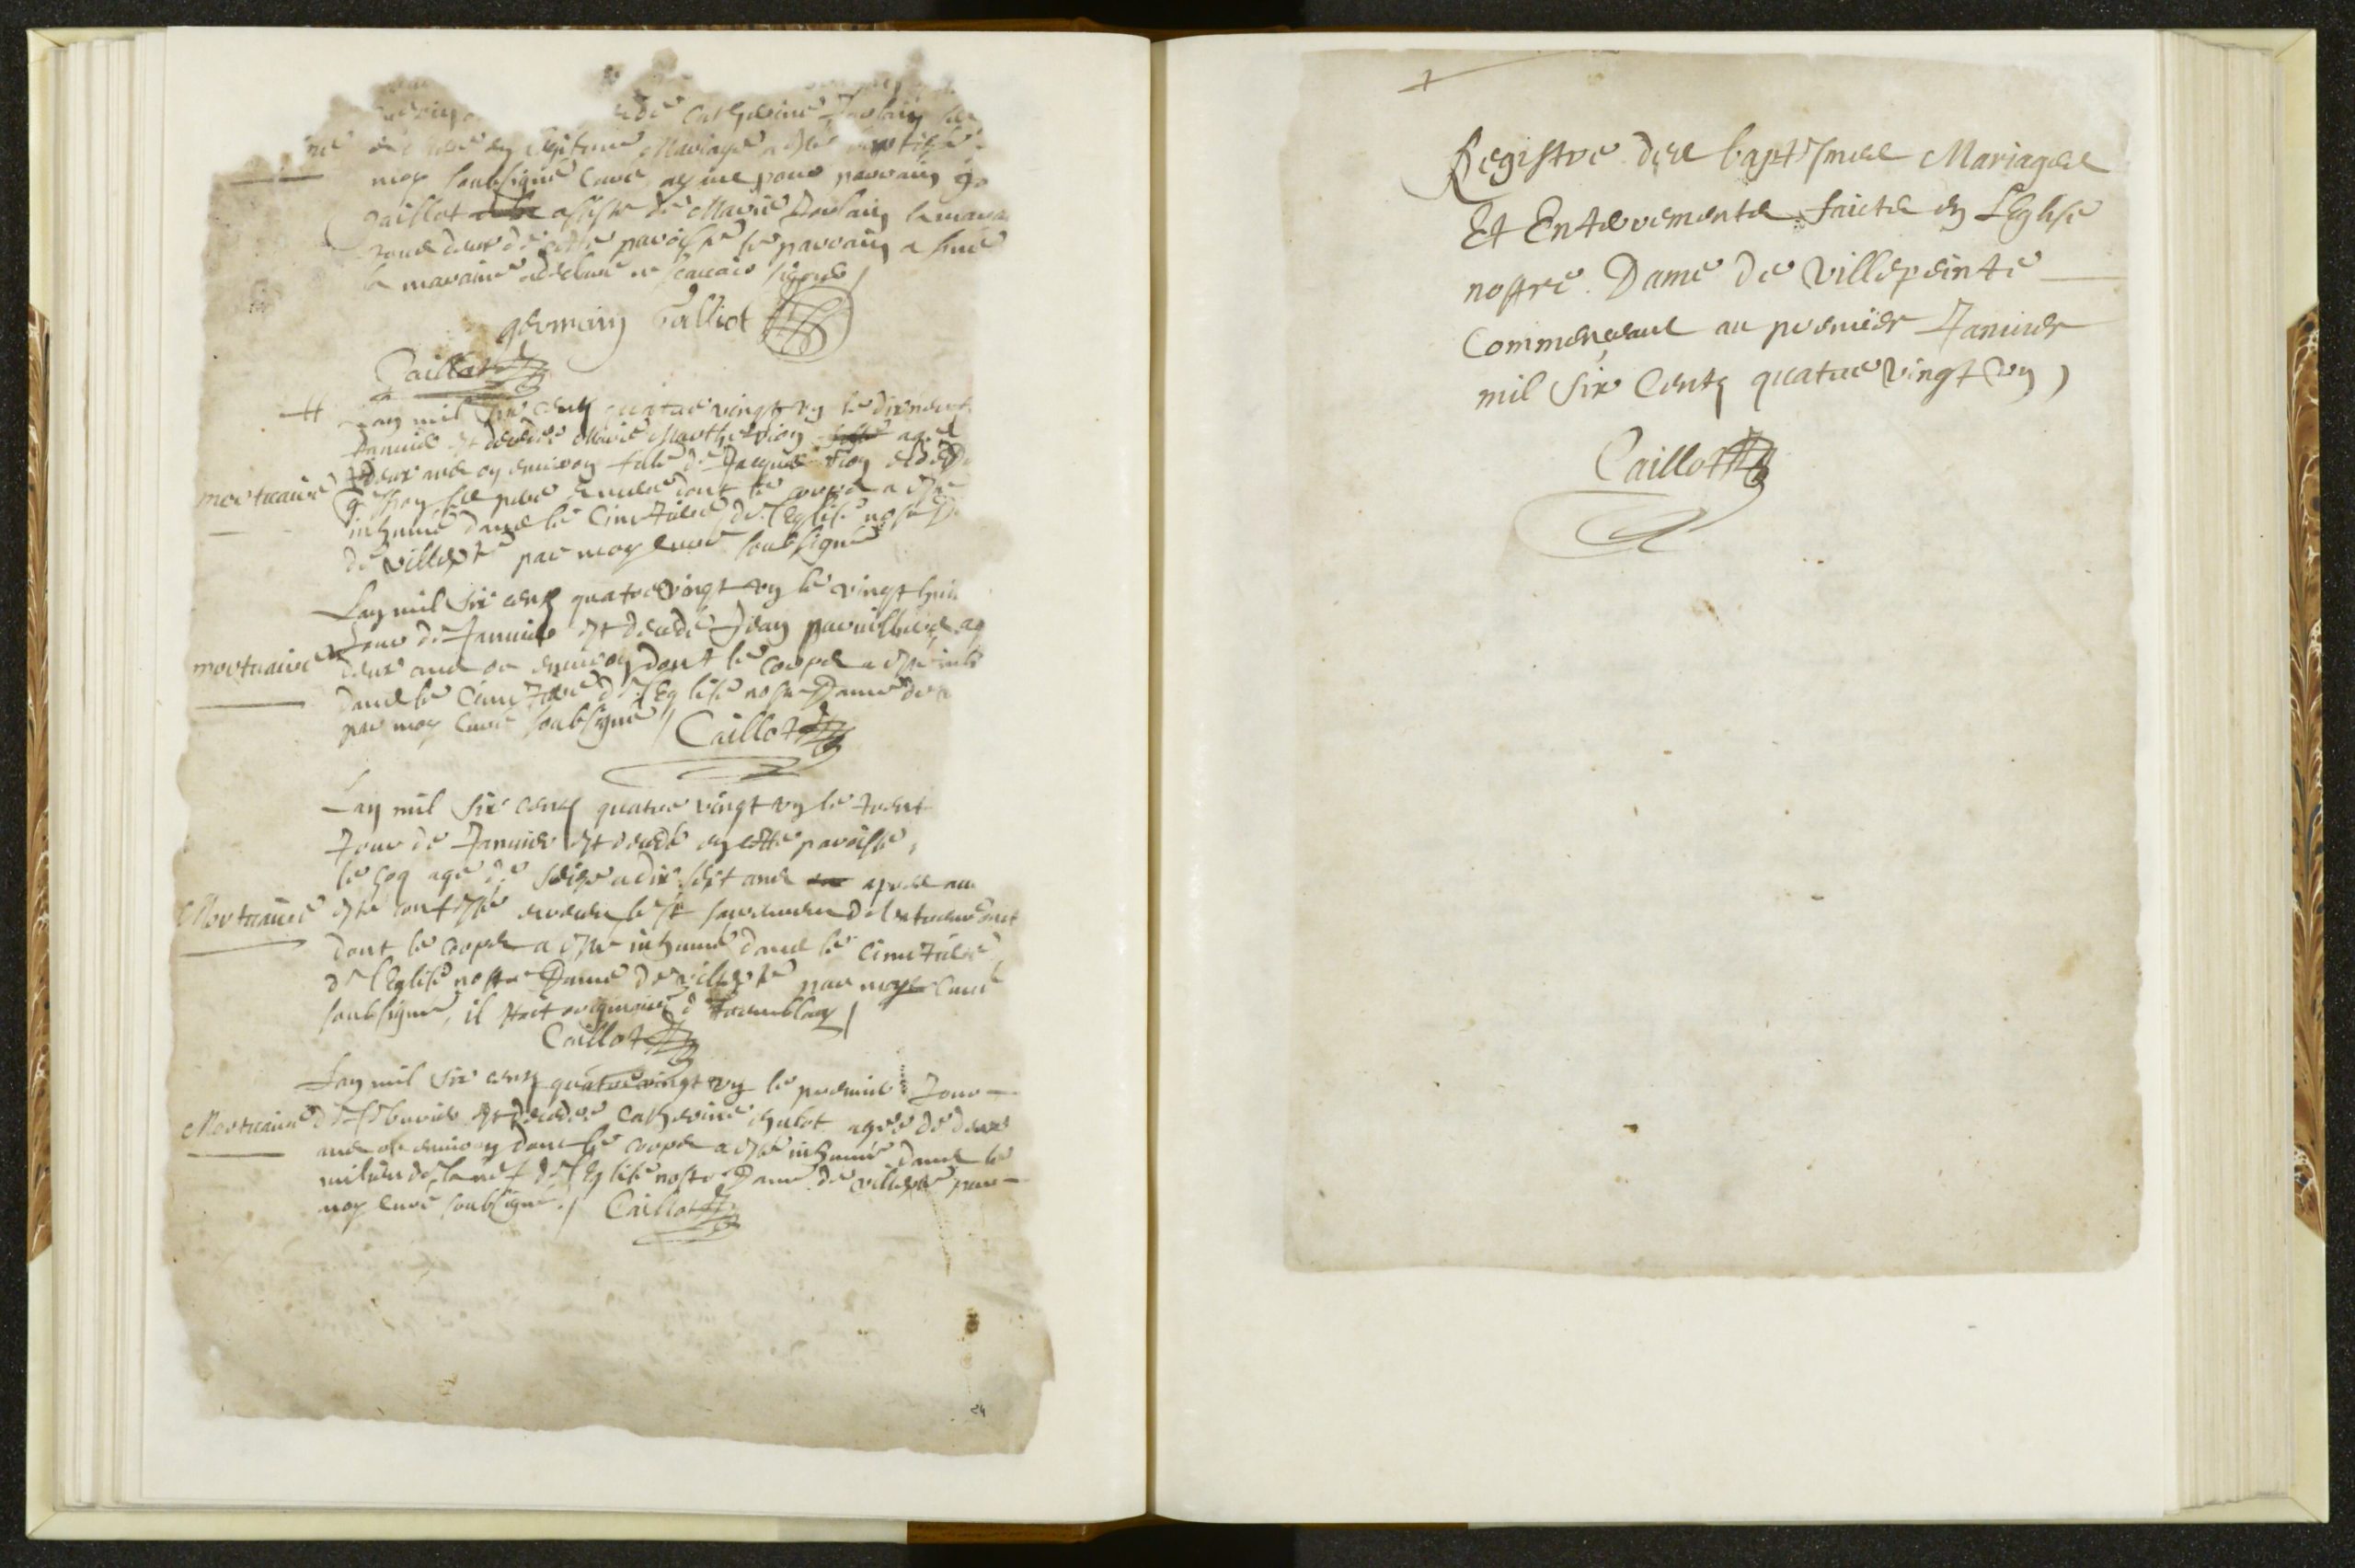 et de Catherine Poulain
né en legitime Mariage a esté baptisé
moy soubsigné Curé ayant pour parrain
Caillot assisté de Marie Poulain la mara
tous deux de cette paroisse le parrain a signé
la maraine a declaré ne scauoir signer /
germain Calliot
Caillot
Lan mil six centz quatre vingt vn le dixneuf
Januier est decedée Marie Marthe vion agée
mortuaire deux ans ou enuiron fille de Jacques vion et de
ses pere et mere dont le corps a esté
inhumé dans le Cimetiere de l'Eglise nostre D
de villepte par moy curé soubsigné
Lan mil six centz quatre vingt vn le vingt huit
Jour de Januier est decedé Jean ag
mortuaire deux ans ou enuiron dont le corps a esté inh
dans le Cimetiere de l'Eglise nostre Dame de v
par moy Curé soubsigné // Caillot
Lan mil six centz quatre vingt vn le trent
Jour de Januier est decedé en cette paroisse
le agé de seize a dix sept ans apres au
Mortuaire esté confessé receu le st sacrement
dont le corps a esté inhumé dans le Cimetiere
de l'Eglise nostre Dame de villepte par moy Curé
soubsigné, il estoit originaire de Tremblay /
Caillot
Lan mil six centz quatre vingt vn le premier Jour
Mortuaire de feburier est decedée Catherine agée de deux
ans ou enuiron dont le corps a esté inhumé dans le
milieu de la nef de l'Eglise nostre Dame de villepte par
moy curé soubsigné. / Caillot
24
Registre des baptesmes Mariages
Et Enterrements faicts en L'Eglise
nostre Dame de Villepeinte
Commenceant au premier Januier
mil six Centz quatre vingt vn
Caillot